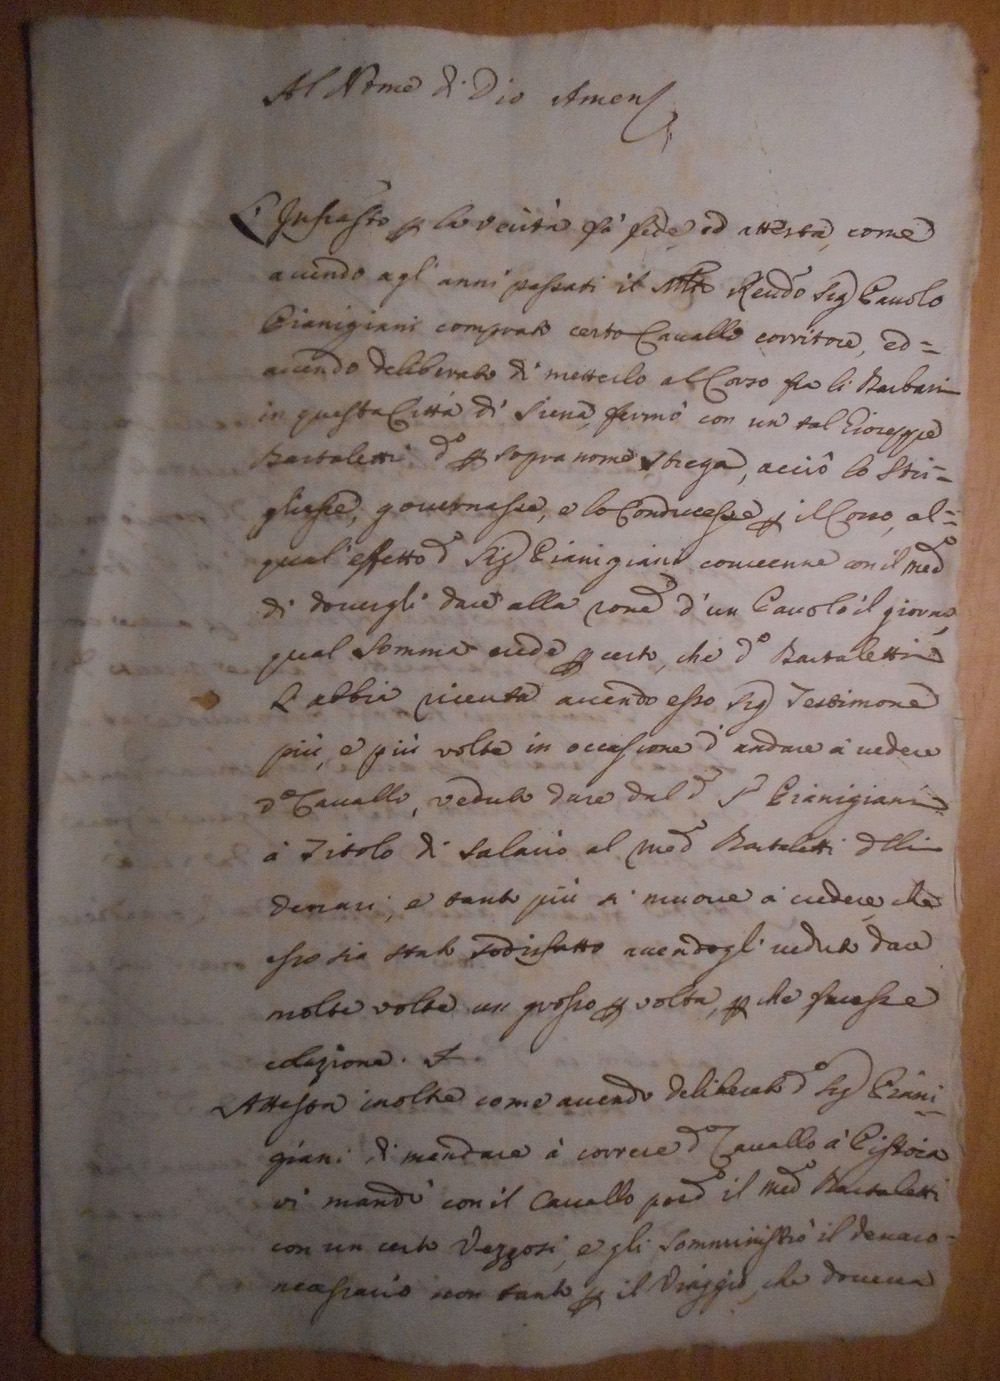 Al Nome di Dio Amen
L'Infrastto p la verità fà fede, ed attesta, come
avendo agl'anni passati il Mlto Revdo Sig Pavolo
Pianigiani comprato certo Cavallo corritore, ed=
avendo deliberato di metterlo al Corso fra li Barbari
in questa Città di Siena, fermò con un tal Gioseppe
Bartaletti do p sopranome Strega, acciò lo Stri=
gliasse, governasse, e lo Conducesse p il Corso, al=
qual'effetto do Sig Pianigiani convenne con il medo
di dovergli dare alla rone d'un Pavolo il giorno
qual Somma crede p certo, che do Bartaletti
l'abbia ricevuta avendo esso Sig Testimone
più, e più volte in occasione d'andare à vedere
do Cavallo, veduto dare dal do Sr Pianigiani
à Titolo di Salario al medo Bartaletti delli
denari, e tanto più si muove à credere, che
esso sia stato sodisfatto avendogli veduto dare
molte volte un grosso p volta, p che facesse
colazione.
Attesta inoltre come avendo deliberato do Sig Piani=
giani di mandare à correre do Cavallo à Pistoia
vi mandò con il Cavallo pordo il medo Bartaletti
con un certo Vezzosi, e gli Somministrò il denaro=
necessario non tanto p il Viaggio, che doveva